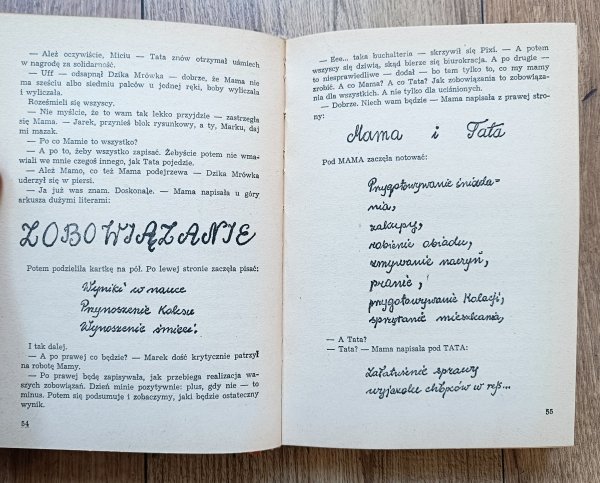 — Ależ oczywiście, Miciu — Tata znów otrzymał uśmiech
w nagrodę za solidarność.
— Uff — odsapnął Dzika Mrówka — dobrze, że Mama nie
ma sześciu albo siedmiu palców u jednej ręki, boby wyliczała
i wyliczała.
Roześmieli się wszyscy.
— Nie myślcie, że to wam tak lekko przyjdzie — zastrzegła
się Mama. — Jarek, przynieś blok rysunkowy, a ty, Marku, daj
mi mazak.
— Po co Mamie to wszystko?
— A po to, żeby wszystko zapisać. Żebyście potem nie wma-
wiali we mnie czegoś innego, jak Tata pojedzie.
— Ależ Mamo, co też Mama podejrzewa — Dzika Mrówka
uderzył się w piersi.
— Ja już was znam. Doskonale. — Mama napisała u góry
arkusza dużymi literami:
ZOBOWIĄZANIE
Potem podzieliła kartkę na pół. Po lewej stronie zaczęła pisać:
Wyniki w nauce
Przynoszenie Koksu
Wynoszenie śmieci.
I tak dalej.
— A po prawej co będzie? — Marek dość krytycznie patrzył
na robotę Mamy.
— Po prawej będę zapisywała, jak przebiega realizacja wa-
szych zobowiązań. Dzień minie pozytywnie: plus, gdy nie — to
minus. Potem się podsumuje i zobaczymy, jaki będzie ostateczny
wynik.
54
— Eee... taka buchalteria — skrzywił się Pixi. — A potem
wszyscy się dziwią, skąd bierze się biurokracja. A po drugie —
to niesprawiedliwe — dodał — bo tam tylko to, co my mamy
zrobić. A co Mama? A co Tata? Jak zobowiązania to zobowiąza-
nia dla wszystkich. A nie tylko dla uciśnionych.
— Dobrze. Niech wam będzie — Mama napisała z prawej stro-
ny:
Mama i Tata
Pod MAMA zaczęła notować:
Przygotowywanie śniada-
nia,
zakupy,
robienie obiadu,
zmywanie naczyń,
pranie,
przygotowywanie Kolacji,
sprzątanie mieszkania,
— A Tata?
— Tata? — Mama napisała pod TATA:
Załatwienie sprawy
wyjazdu chłopców w rejs...
55